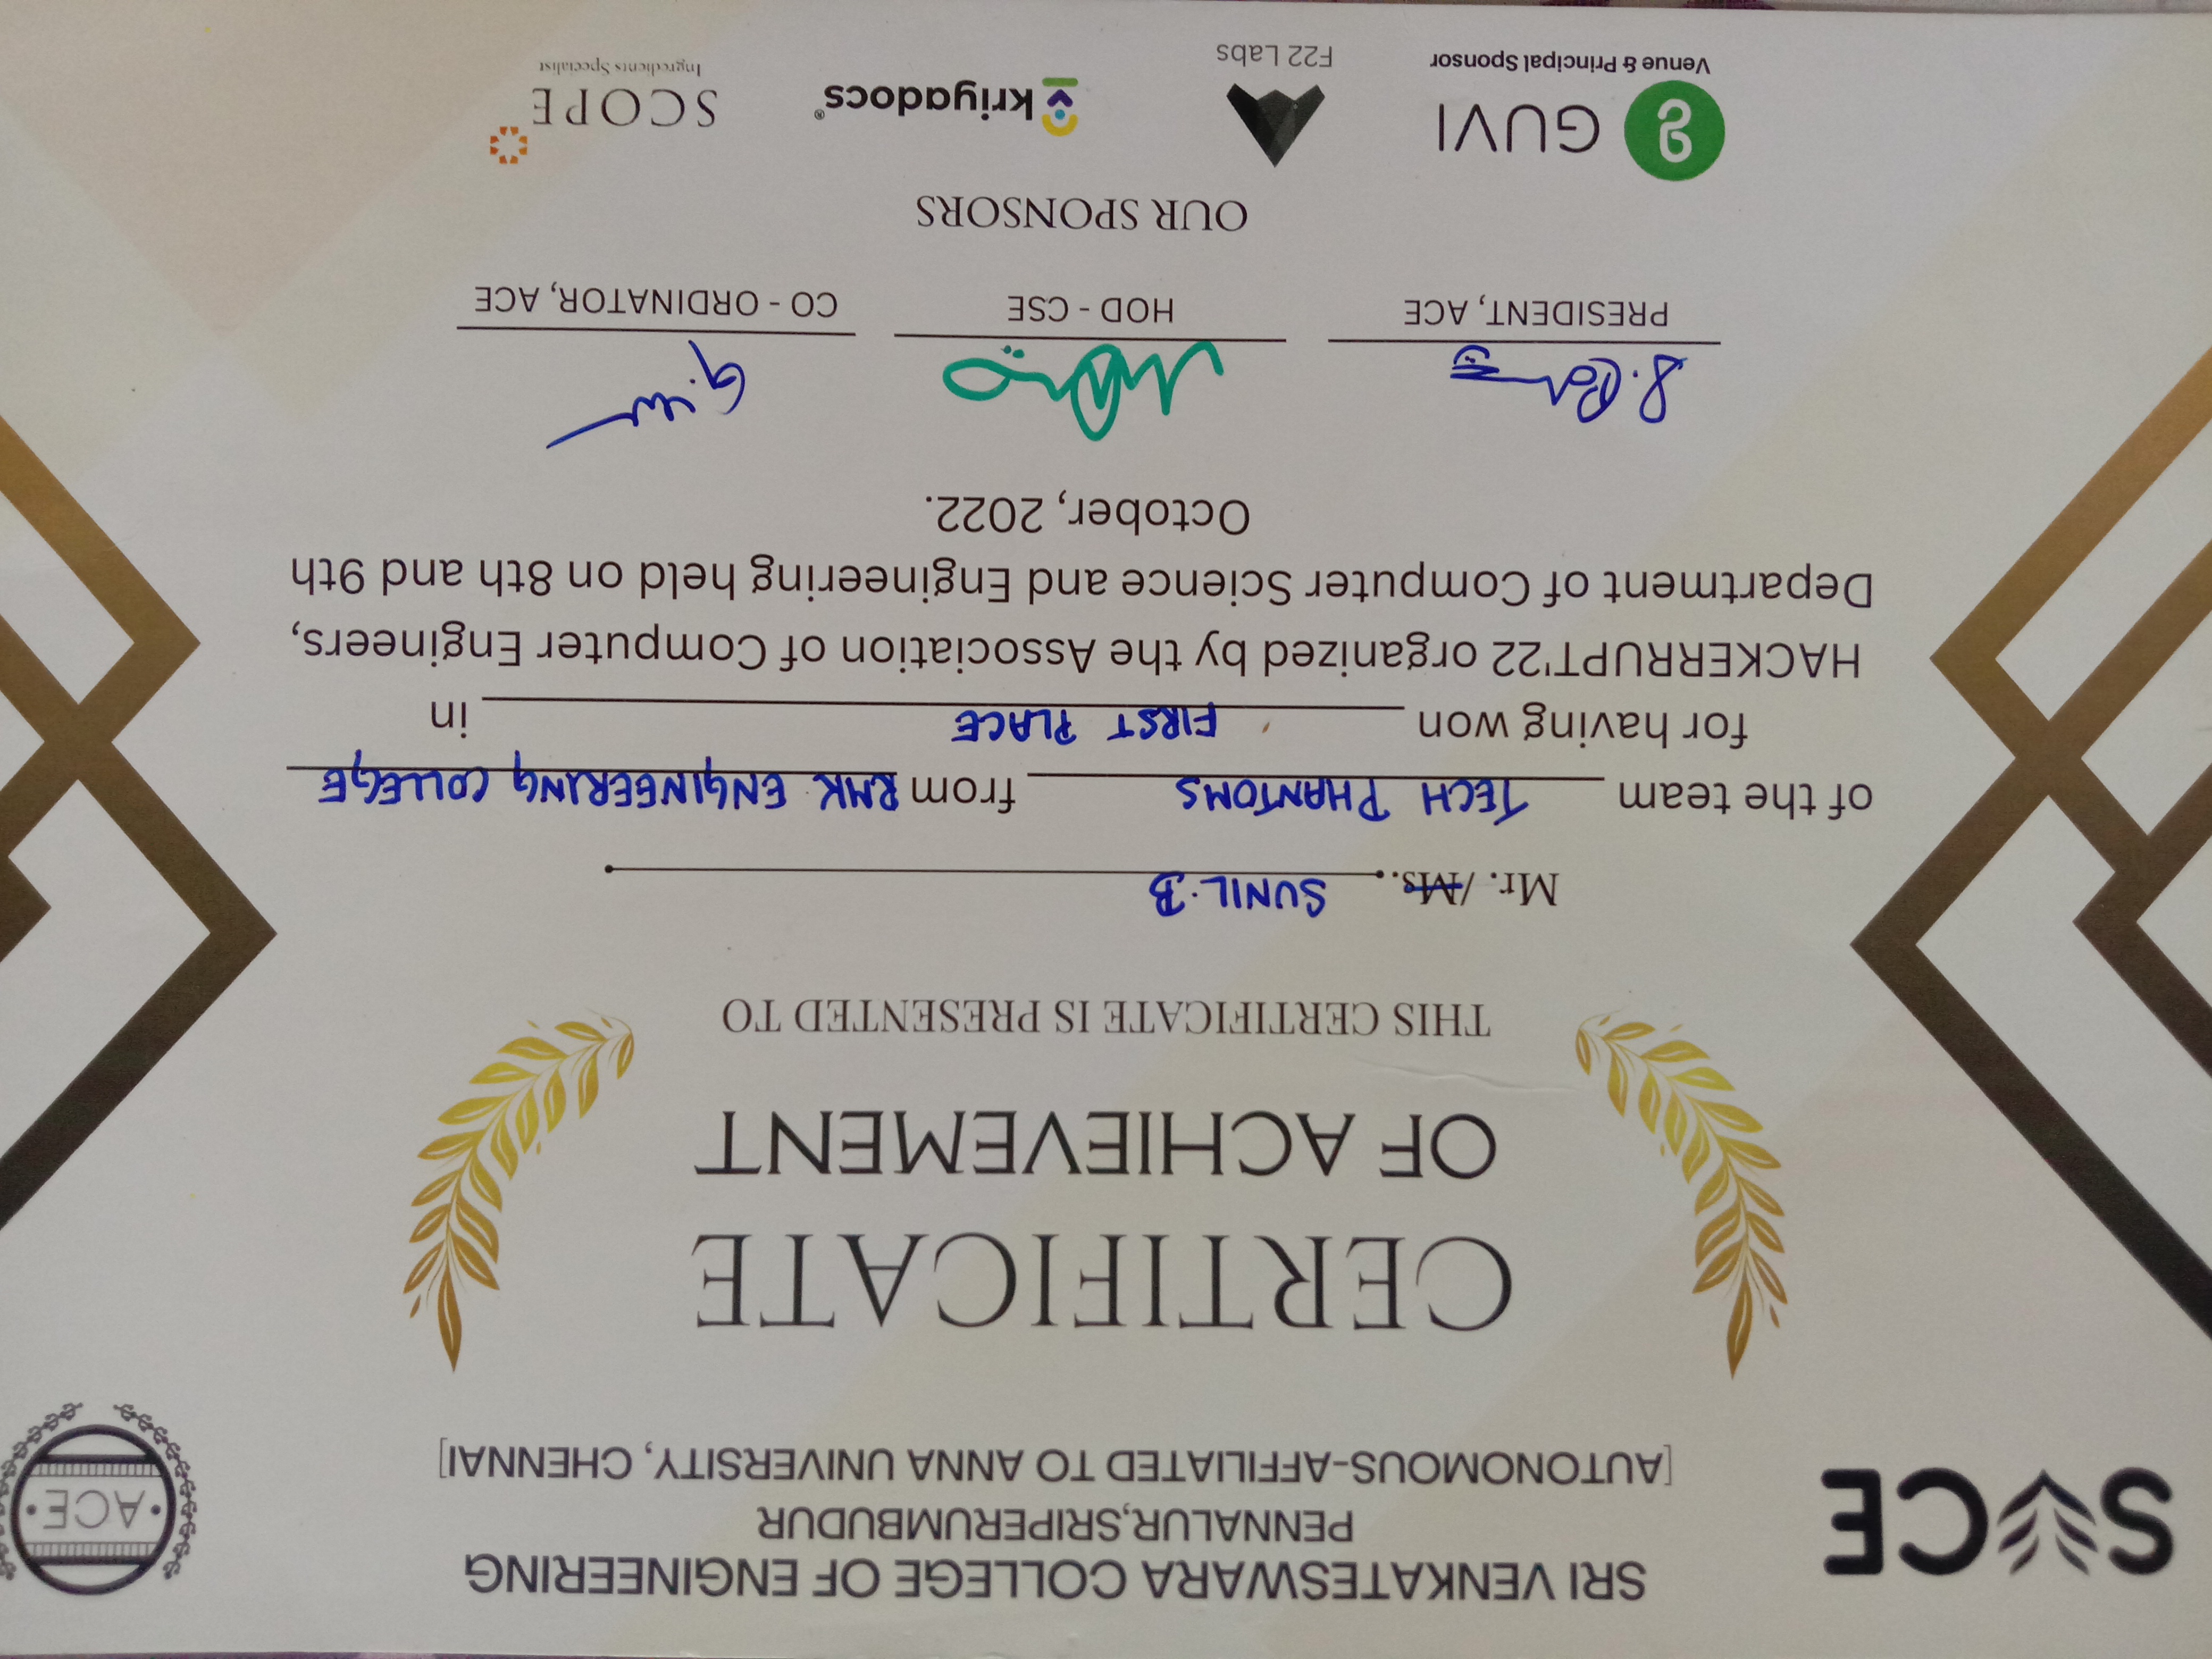 SVCE
SRI VENKATESWARA COLLEGE OF ENGINEERING
PENNALUR,SRIPERUMBUDUR
[AUTONOMOUS-AFFILIATED TO ANNA UNIVERSITY, CHENNAI]
•ACE•
CERTIFICATE
OF ACHIEVEMENT
THIS CERTIFICATE IS PRESENTED TO
Mr. /Ms.. SUNIL.B
of the team TECH PHANTOMS from RMK ENGINEERING COLLEGE
for having won FIRST PLACE in
HACKERRUPT'22 organized by the Association of Computer Engineers,
Department of Computer Science and Engineering held on 8th and 9th
October, 2022.
PRESIDENT, ACE HOD - CSE CO - ORDINATOR, ACE
OUR SPONSORS
GUVI
Venue & Principal Sponsor
F22 Labs
kriyadocs®
SCOPE
Ingredients Specialist